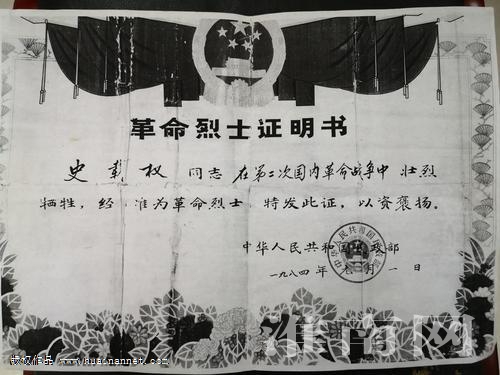 革命烈士证明书
史 权 同志 在第二次国内革命战争中 壮烈
牺牲，经 准为革命烈士，特发此证，以资褒扬。
中华人民共和国民政部
一九八四年 月一日
淮南网
版权作品 www.huainannet.com